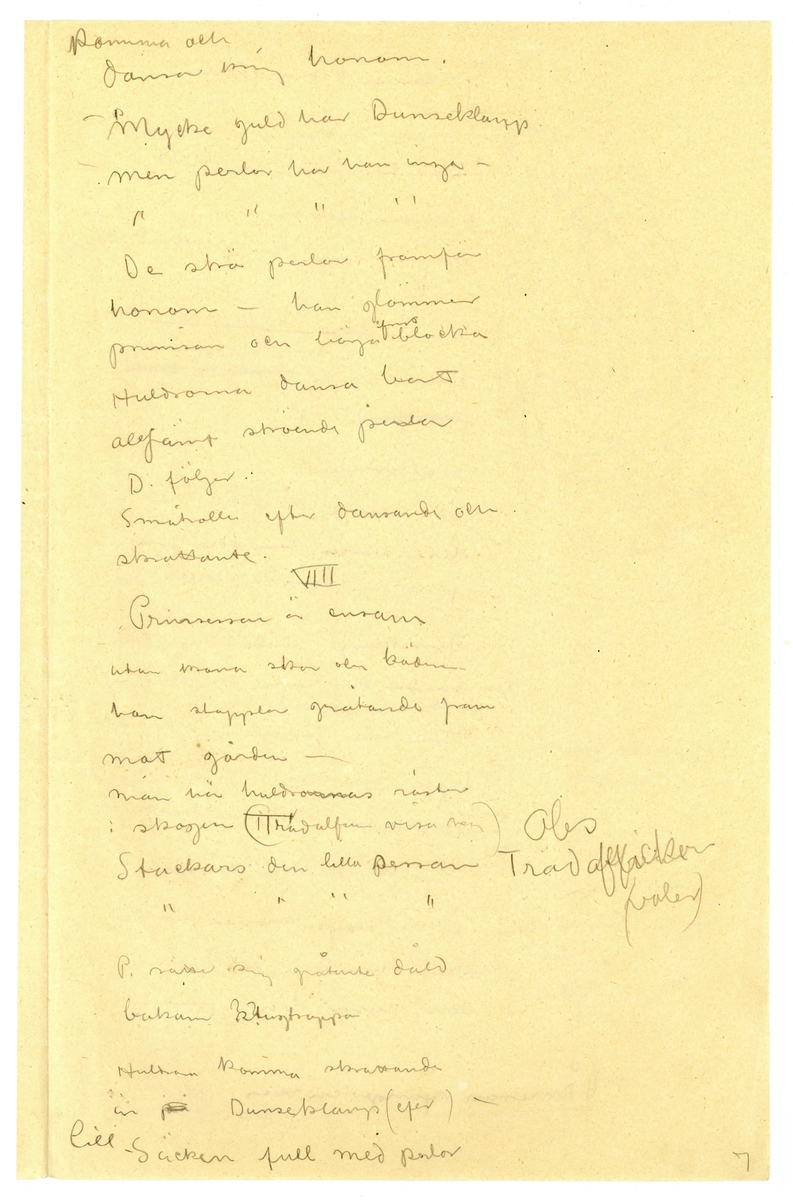 Komma och
dansa kring honom.
– Mycke guld har Dunseklamp
– men perlor har han inga –
" " " "
De strö perlor framför
honom – han glömmer
prinsisan och börja blocka
Huldrorna dansa bort
alljämt ströende perlor
D. följer.
Småtrolle efter dansande och
skrattante.
VIII
Prinsessan är ensam
utan krona skor och
hon stapplar gråtande fram
mot gården –
man hör huldrornas röster
i skogen (Trädalfen visa sig)
Stackars den lilla pessan
" " " "
Obs
Trädalf
P. sätter sig gråtante dåld
bakom
Huldran komma skrattande
in Dunseklamp (efter) –
lill - Säcken full med perlor
7